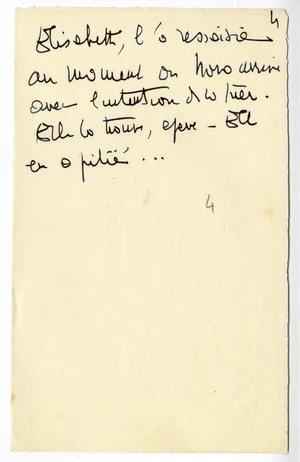 4
Elisabeth, l'a ressaisie
au moment où Nora arrive
avec l'intention de la tuer.
Elle la trouve, – Elle
en a pitié...
4